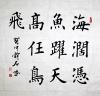 海濶憑
魚躍天
高任鳥
飛